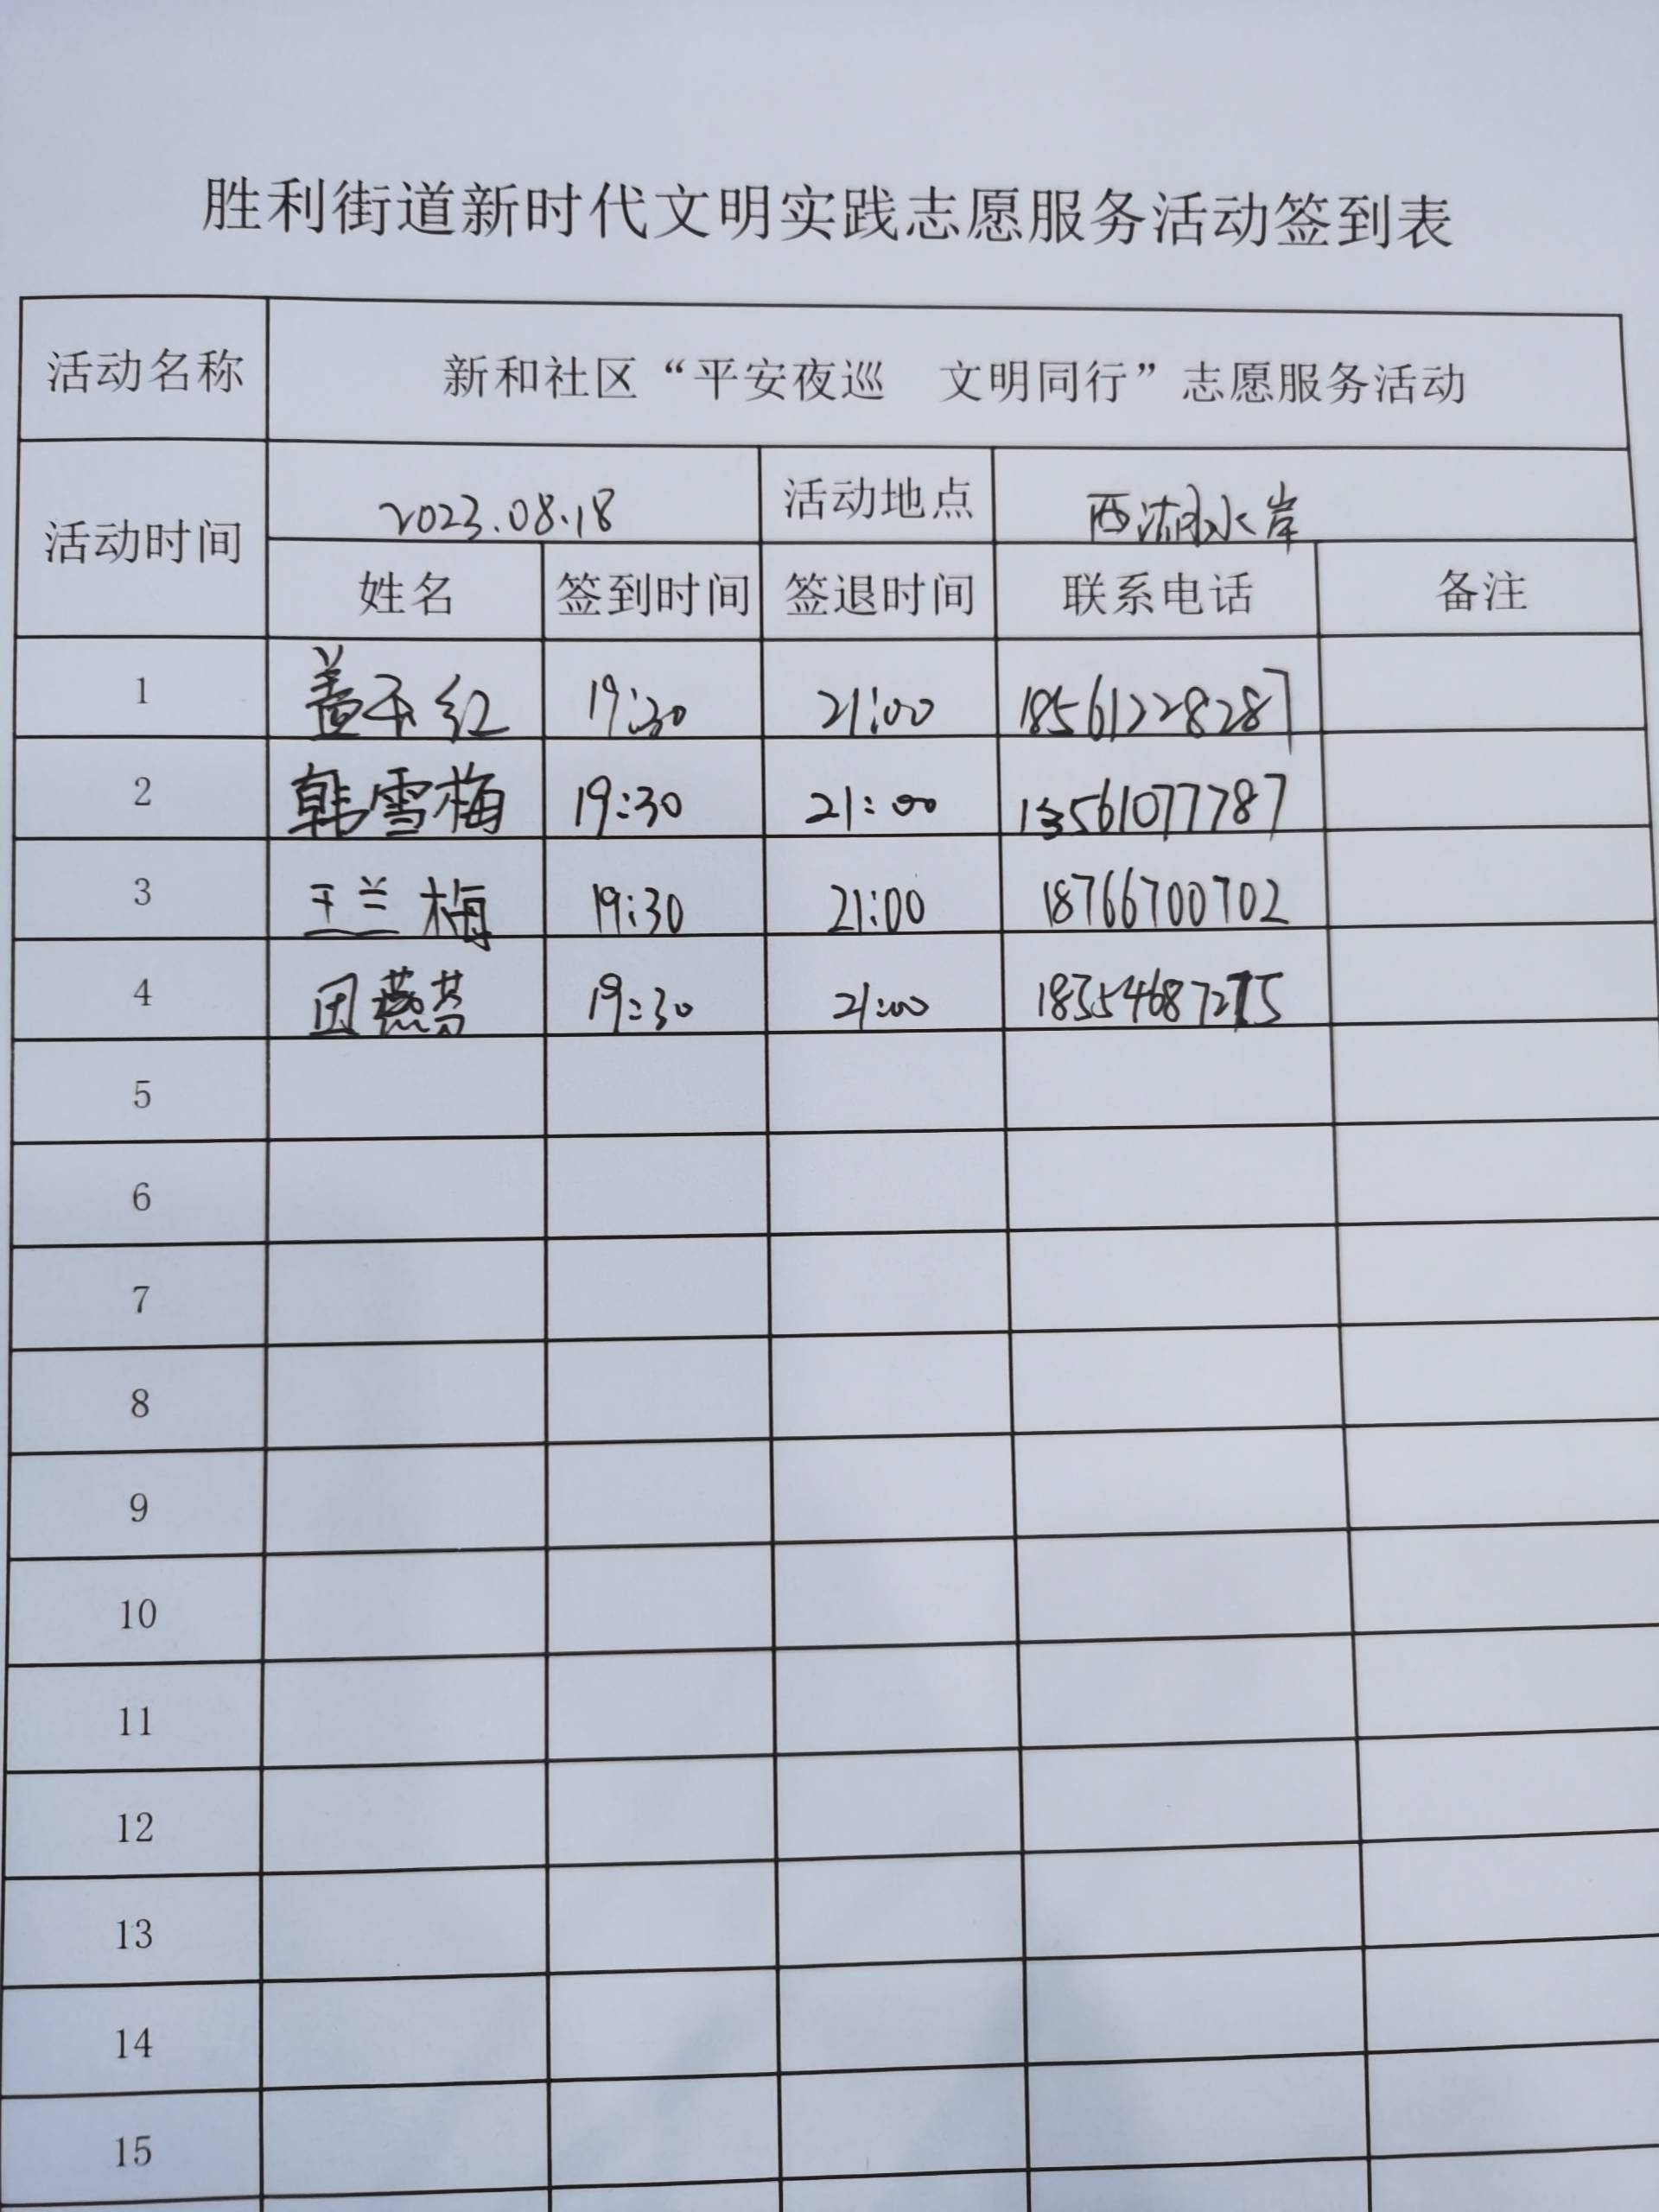 胜利街道新时代文明实践志愿服务活动签到表
活动名称 新和社区“平安夜巡 文明同行”志愿服务活动
活动时间 2023.08.18 活动地点 西湖水岸
姓名 签到时间 签退时间 联系电话 备注
1 盖玉红 19:30 21:00 18561228287
2 韩雪梅 19:30 21:00 13561077787
3 王兰梅 19:30 21:00 18766700702
4 田燕芳 19:30 21:00 18354687275
5
6
7
8
9
10
11
12
13
14
15